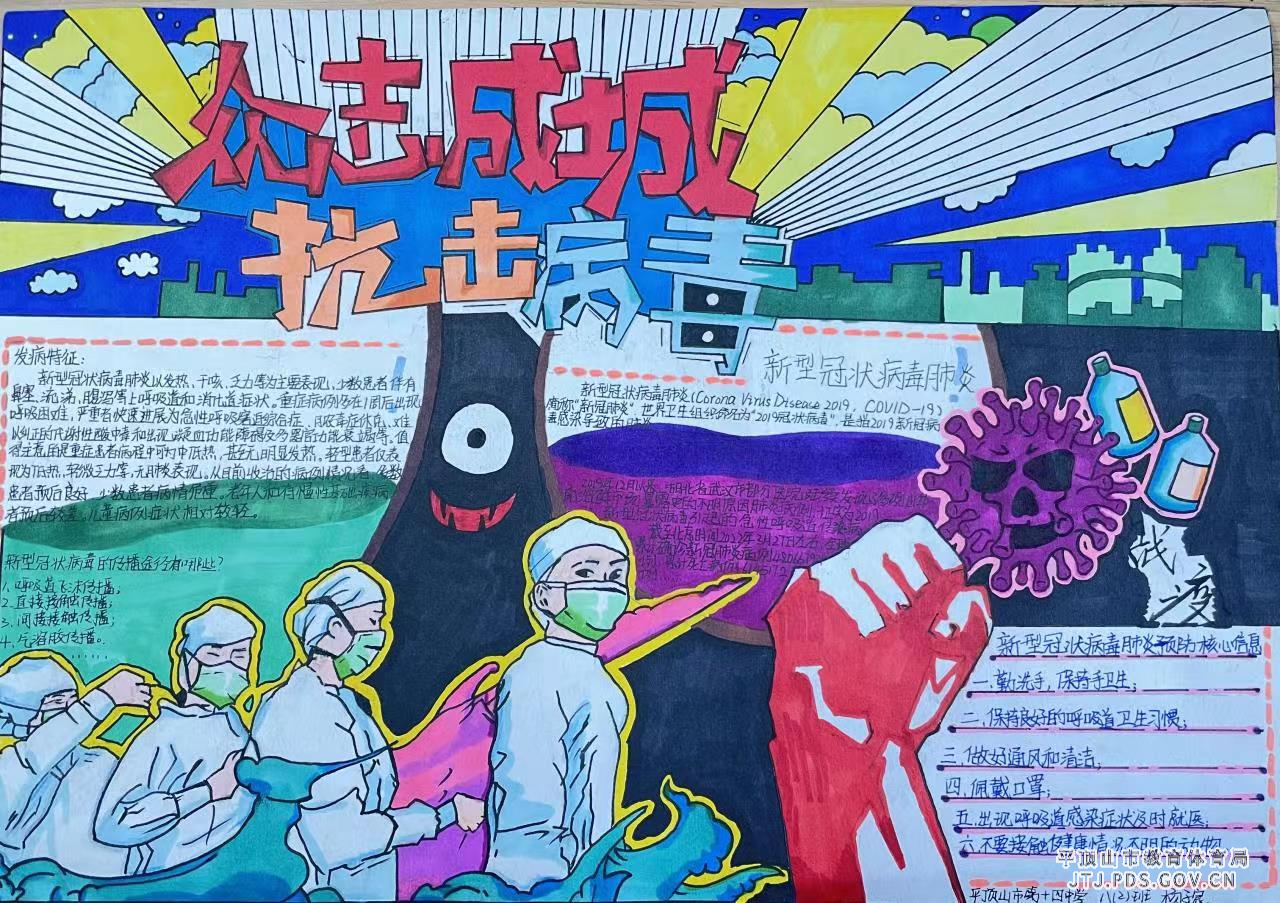 众志成城
抗击病毒
发病特征：
新型冠状病毒肺炎以发热、干咳、乏力等为主要表现，少数患者伴有
鼻塞、流涕、腹泻等上呼吸道和消化道症状。重症病例多在1周后出现
呼吸困难，严重者快速进展为急性呼吸窘迫综合征、脓毒症休克、难
以纠正的代谢性酸中毒和出现凝血功能障碍及多器官功能衰竭等。值
得注意的是重症患者病程中可为中低热，甚至无明显发热。轻型患者仅表
现为低热，轻微乏力等，无肺炎表现。从目前收治的病例情况看，多数
患者预后良好，少数患者病情危重。老年人和有慢性基础疾病
者预后较差。儿童病例症状相对较轻。
新型冠状病毒的传播途径有哪些？
1、呼吸道飞沫传播；
2、直接接触传播；
3、间接接触传播；
4、气溶胶传播。
......
新型冠状病毒肺炎
新型冠状病毒肺炎(Corona Virus Disease 2019, COVID-19)
简称"新冠肺炎"，世界卫生组织命名为"2019冠状病毒"，是指2019新冠病
毒感染导致的肺炎
2019年12月以来，湖北省武汉市部分医院陆续发现了多例
不明原因肺炎病例，证实为2019
新型冠状病毒引起的急性呼吸道传染病
截至北京时间2022年3月27日
战疫
新型冠状病毒肺炎预防核心信息
一、勤洗手，保持手卫生；
二、保持良好的呼吸道卫生习惯；
三、做好通风和清洁；
四、佩戴口罩；
五、出现呼吸道感染症状及时就医；
六、不要接触健康情况不明的动物
平顶山市教育体育局
JTJ.PDS.GOV.CN
平顶山市第十四中学 八(2)班